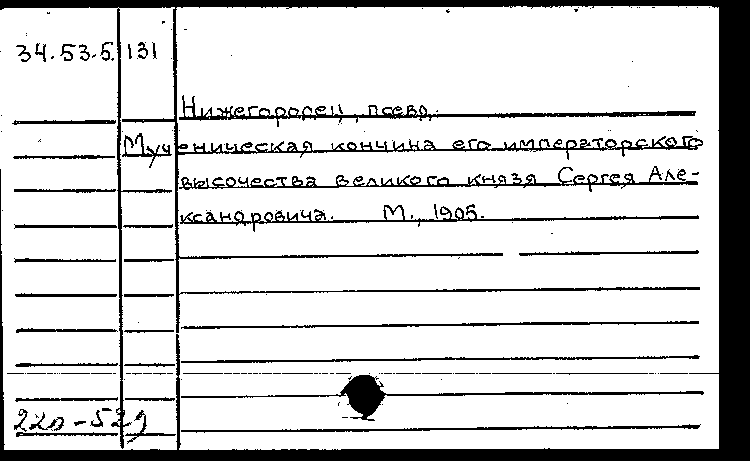 34.53.5. 131
Нижегородец, псевд.
Мученическая кончина его императорского
высочества великого князя Сергея Але-
ксандровича. М., 1905.
220-529